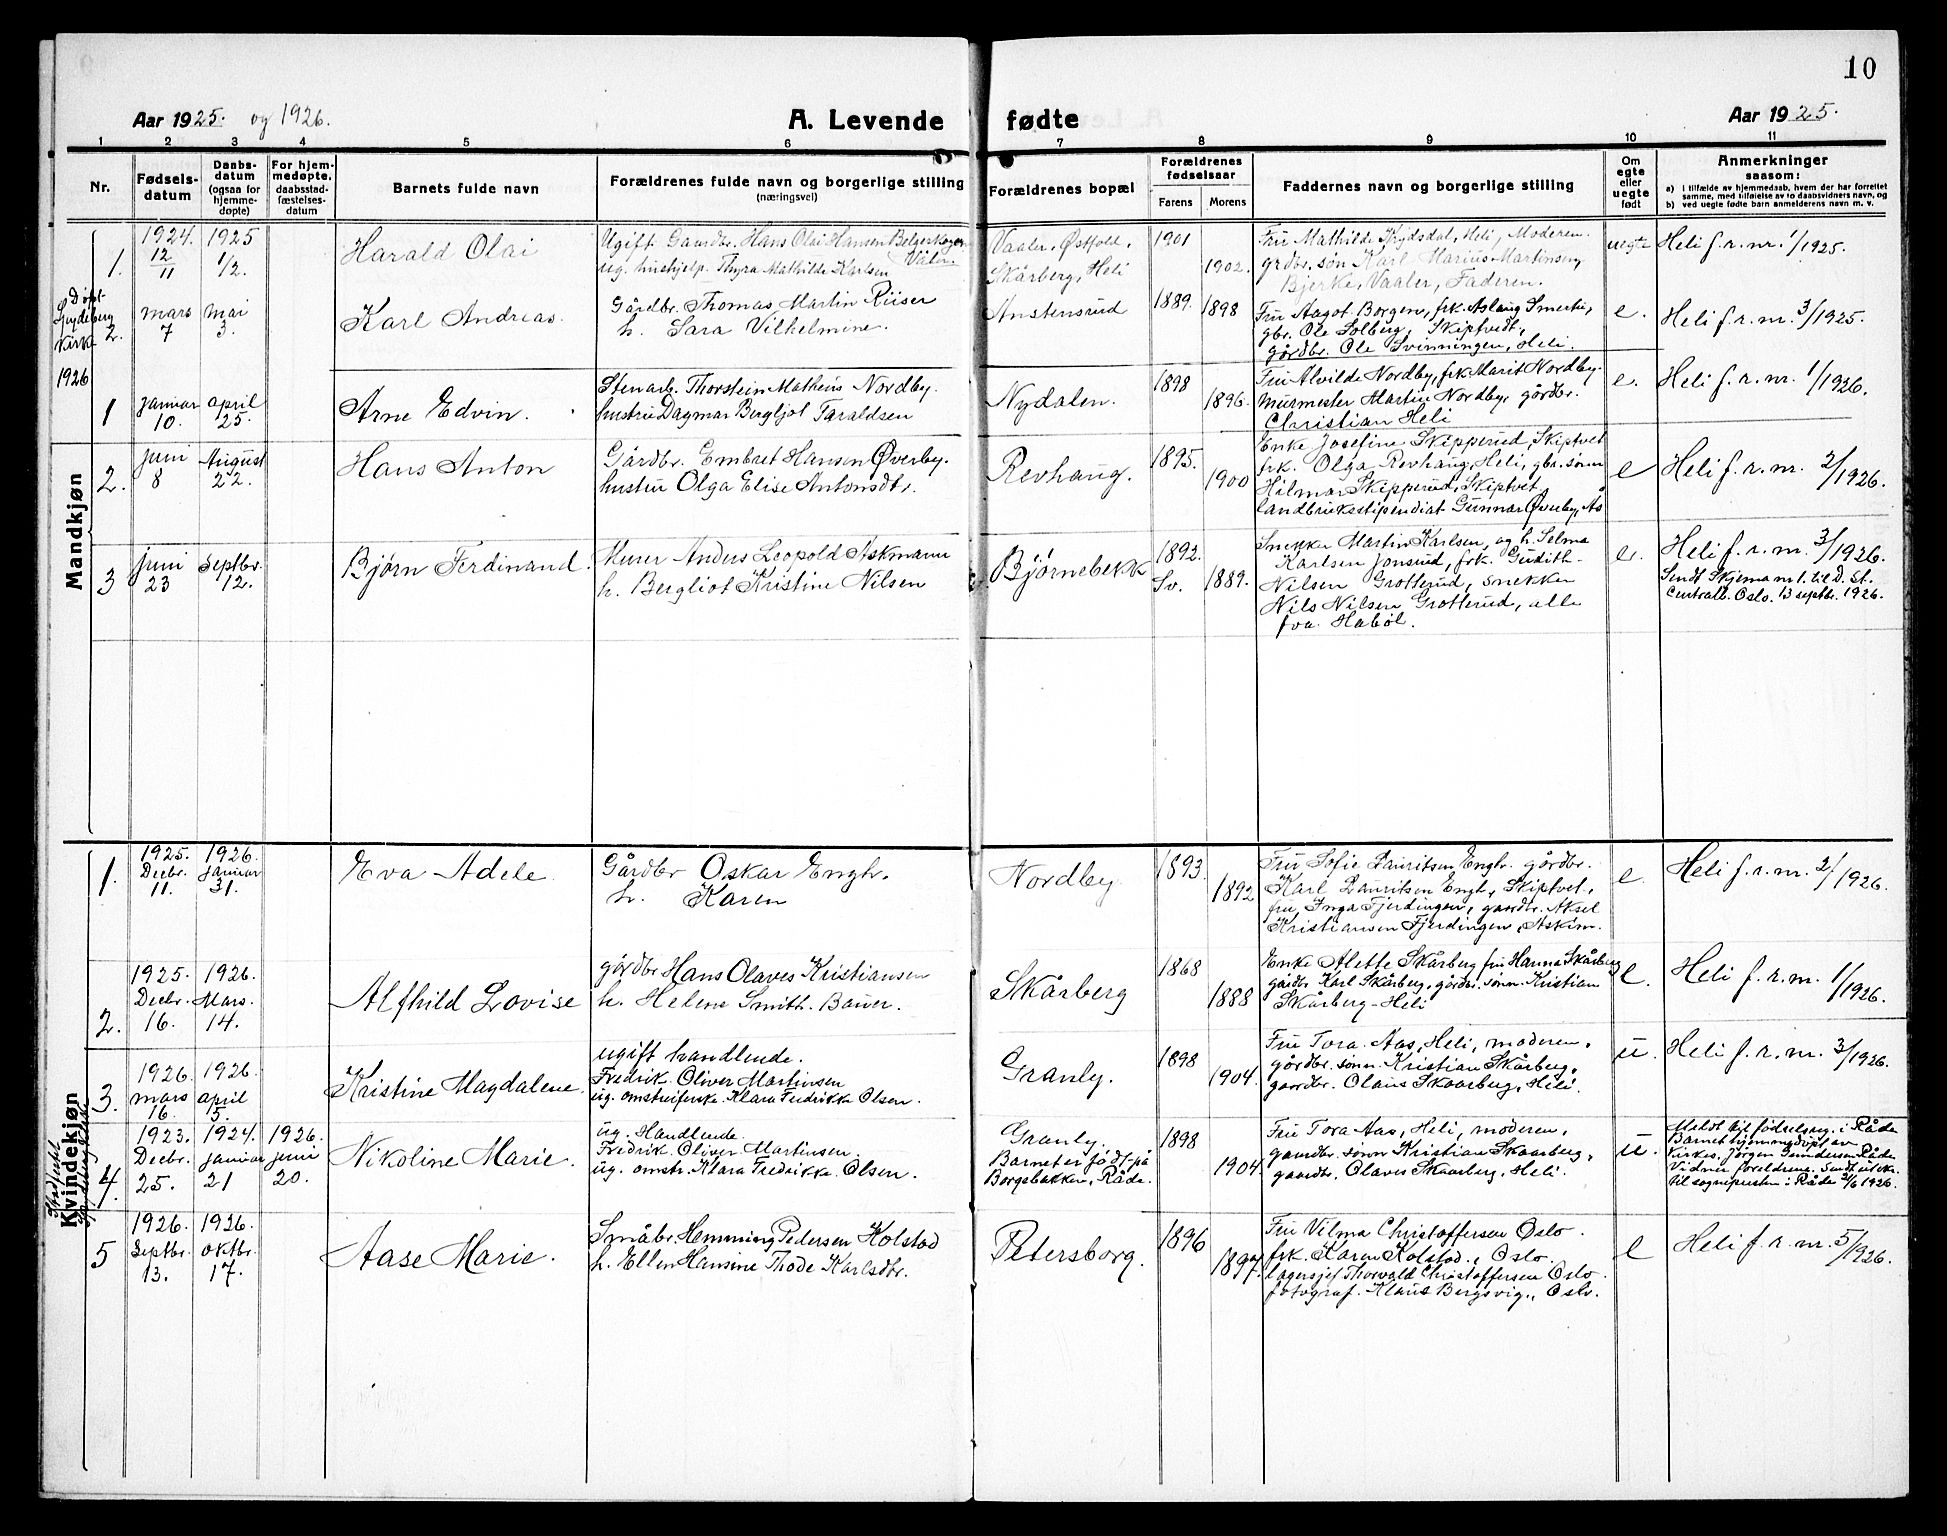 10
Aar 1925. og 1926.
A. Levende fødte
Aar 1925.
1 2 3 4 5 6 7 8 9 10 11
Nr.
Fødsels-
datum
Daabs-
datum
(ogsaa for
hjemme-
døpte)
For hjem-
medøpte.
daabsstad-
fæstelses-
datum
Barnets fulde navn
Forældrenes fulde navn og borgerlige stilling
(næringsvei)
Forældrenes bopæl
Forældrenes
fødselsaar
Farens. Morens.
Faddernes navn og borgerlige stilling
Om
egte
eller
uegte
født
Anmerkninger
saasom:
a) I tilfælde av hjemmedaab, hvem der har forrettet
samme, med tilføielse av to daabsvidners navn, og
b) ved uegte fødte barn anmelderens navn m. v.
Mandkjøn
1.
1924.
12/11
1925
1/2.
Harald Olai
Ugift Gaardbr. Hans Olai Hansen
ug. hushjelp. Thyra Mathilde Karlsen Våler.
Vaaler, Østfold,
Skårberg, Heli
1901
1902.
Fru Mathilde Heli, Moderen.
grdbr. søn Karl Marius Martinsen
Bjerke, Vaaler, Faderen.
uegte
Heli f. r. nr. 1/1925.
Døpt
Spydeberg
Kirke
2.
mars
7
mai
3.
Karl Andreas.
Gårdbr. Thomas Martin Riiser
h. Sara Vilhelmine.
Anstensrud
1889.
1898
Fru Aagot Borgen, frk. Aslaug Smerte,
gbr. Ole Solberg, Skiptvedt,
gårdbr. Ole Svinningen, Heli.
e.
Heli f. r. nr. 3/1925.
1926
1
januar
10.
april
25.
Arne Edvin.
Stenarb. Thorstein Matheus Nordby.
hustru Dagmar Bergljot Taraldsen
Nydalen.
1898
1896.
Fru Alvilde Nordby, frk. Marit Nordby.
Murmester Martin Nordby, gårdbr.
Christian Heli
e.
Heli f. r. nr. 1/1926.
2.
juni
8
August
22.
Hans Anton
Gårdbr. Embret Hansen Øverby.
hustru Olga Elise Antonsdtr.
Revhaug.
1895.
1900
Enke Josefine Skipperud, Skiptvet
frk. Olga Revhaug, Heli, gbr. sønn
Hilmar Skipperud, Skiptvet,
landbruksstipendiat Gunnar Øverby, Ås
e
Heli f. r. nr. 2/1926.
3
juni
23
septbr.
12.
Bjørn Ferdinand.
Murer Anders Leopold Askmann
h. Bergliot Kristine Nilsen
Bjørnebekk
1892.
Sv.
1889.
Snekker Martin Karlsen, og h. Selma
Karlsen Jonsrud, frk. Gudith
Nilsen Grotterud, snekker
Nils Nilsen Grotterud, alle
fra Habøl.
e.
Heli f. r. nr. 3/1926.
Sendt Skjema nr 1. til D. St.
Centralb. Oslo. 13 septbr. 1926.
Kvindekjøn
1.
1925.
Decbr.
11.
1926.
januar
31.
Eva Adele.
Gårdbr Oskar Engh.
h. Karen
Nordby
1893.
1892
Fru Sofie Lauritsen Engh. gårdbr.
Karl Lauritsen Engh, Skiptvet,
fru Inga Fjerdingen, gaardbr. Aksel
Kristiansen Fjerdingen, Askim.
e.
Heli f. r. nr. 2/1926.
2.
1925.
Decbr.
16.
1926.
Mars.
14.
Alfhild Lovise
gårdbr Hans Olaves Kristiansen
h. Helene Smith. Bauer.
Skårberg
1868
1888
Enke Alette Skårberg fru Hanna Skårberg
gårdbr Karl Skårberg, gårdbr. sønn Kristian
Skårberg - Heli
e.
Heli f. r. nr. 1/1926.
3.
1926.
mars
16.
1926.
april
5.
Kristine Magdalene.
ugift handlende.
Fredrik Oliver Martinsen
ug. omstreiferske. Klara Fredrikke Olsen.
Granly.
1898
1904.
Fru Tora Aas, Heli, moderen,
gårdbr. sønn Kristian Skårberg,
gaardbr. Olaus Skaarberg, Heli.
u.
Heli f. r. nr. 3/1926.
4.
1923.
Decbr.
25.
1924.
januar
21
1926.
juni
20.
Nikoline Marie.
ug. Handlende.
Fredrik Oliver Martinsen
ug. omstr. Klara Fredrikke Olsen.
Granly.
Barnet er født på
Borgebakken, Råde.
1898
1904.
Fru Tora Aas, Heli, moderen,
gaardbr. sønn Kristian Skaarberg,
gaardbr. Olaves Skaarberg, Heli.
u.
Meldt til fødselsreg. i Råde
Barnet hjemmedøpt av
Kirkes. Jørgen Gundersen Råde
Vidner foreldrene. Sendt
til sogneprsten i Råde 2/6 1926.
5
1926.
Septbr.
13.
1926.
Oktbr.
17.
Aase Marie.
Småbr. Hemming Pedersen Kolstad
h. Ellen Hansine Thode Karlsdtr.
Petersborg.
1896
1897.
Fru Vilma Christoffersen Oslo.
frk. Karen Kolstad, Oslo.
lagersjef Thorvald Christoffersen Oslo.
fotograf. Klaus Bergsvig., Oslo.
e
Heli f. r. nr. 5/1926.